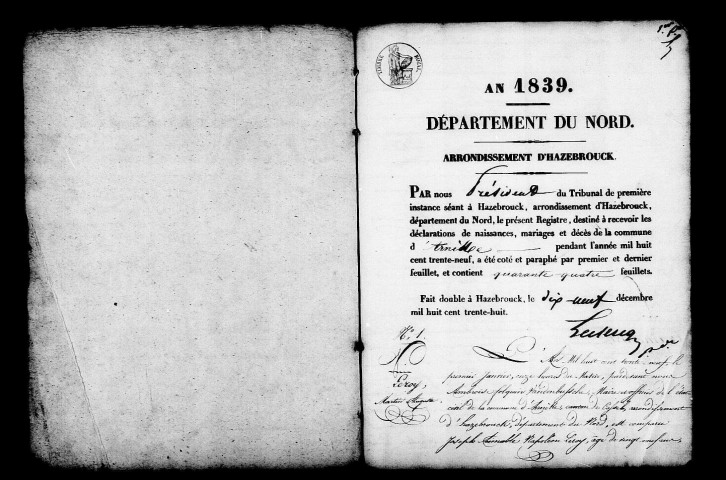 1er f
TIMBRE ROYAL
AN 1839.
DÉPARTEMENT DU NORD.
ARRONDISSEMENT D'HAZEBROUCK.
PAR nous Président du Tribunal de première
instance séant à Hazebrouck, arrondissement d'Hazebrouck,
département du Nord, le présent Registre, destiné à recevoir les
déclarations de naissances, mariages et décès de la commune
d'Arnèke pendant l'année mil huit
cent trente-neuf, a été coté et paraphé par premier et dernier
feuillet, et contient quarante quatre feuillets.
Fait double à Hazebrouck, le dix neuf décembre
mil huit cent trente-huit.
No. 1.
N
Leroy,
L'An Mil huit cent trente-neuf, le
premier Janvier, onze heures du Matin, pardevant nous
Ambroise Maire officier de l'état
civil de la commune d'Arnèke, canton de Cassel, arrondissement
d'hazebrouck, département du Nord, est comparu
Joseph Aimable Napoléon Leroy, âgé de vingt neuf ans